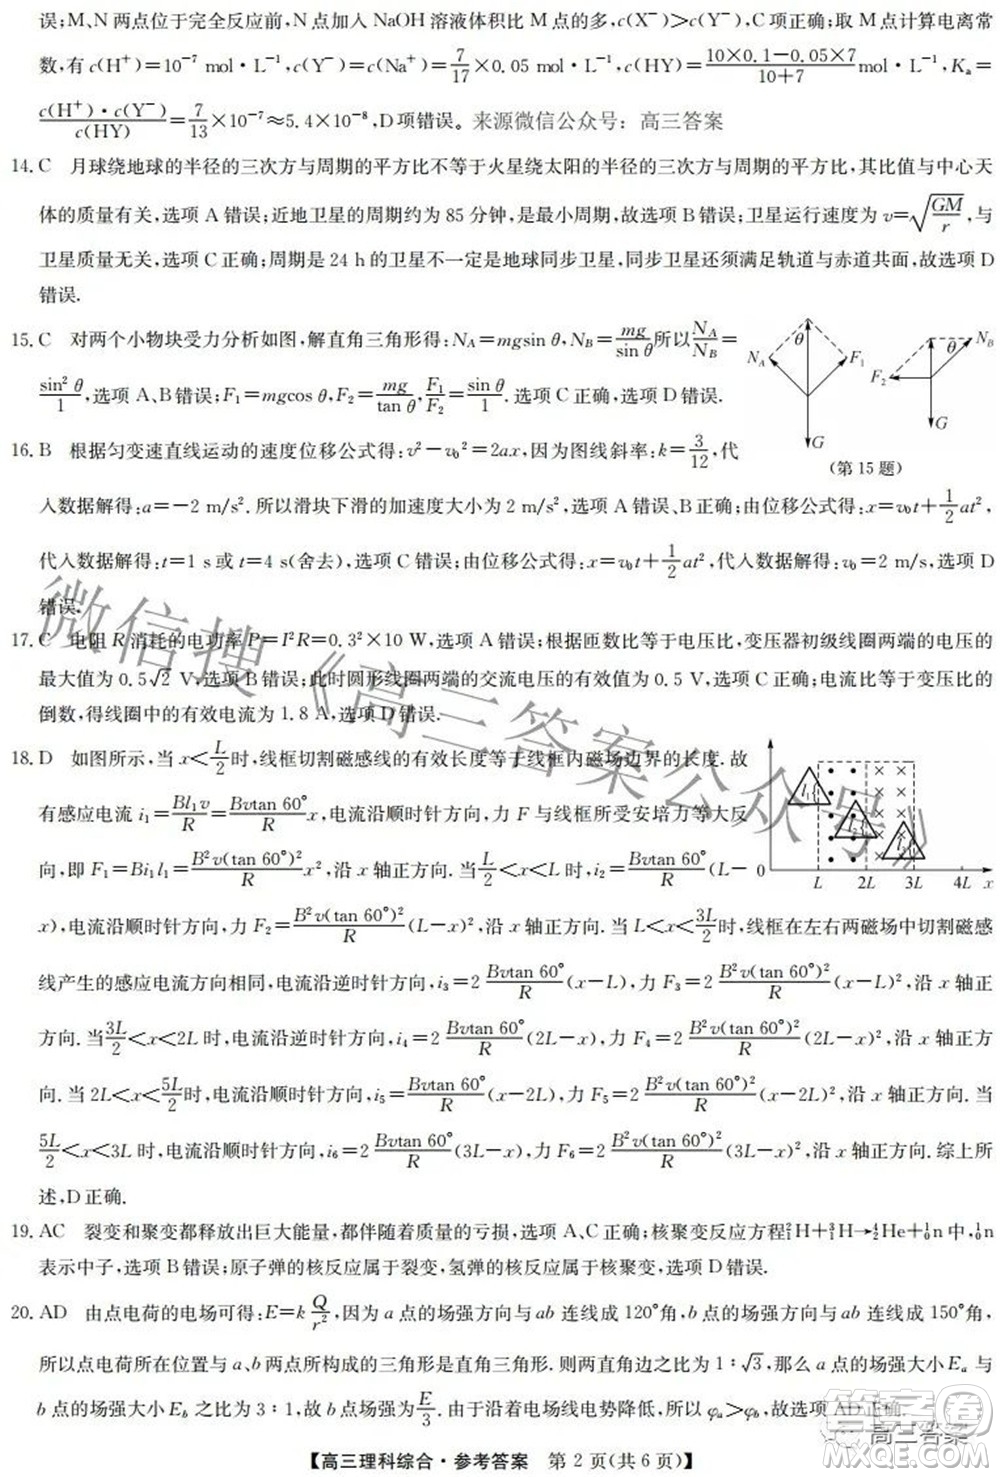 误;M、N两点位于完全反应前,N点加入NaOH溶液体积比M点的多,c(X⁻)>c(Y⁻),C项正确;取M点计算电离常
数,有c(H⁺)=10⁻⁷ mol·L⁻¹,c(Y⁻)=c(Na⁺)=7/17×0.05 mol·L⁻¹,c(HY)=(10×0.1-0.05×7)/(10+7) mol·L⁻¹,Kₐ=
c(H⁺)·c(Y⁻)/c(HY)=7/13×10⁻⁷≈5.4×10⁻⁸,D项错误。来源微信公众号:高三答案
14.C 月球绕地球的半径的三次方与周期的平方比不等于火星绕太阳的半径的三次方与周期的平方比,其比值与中心天
体的质量有关,选项A错误;近地卫星的周期约为85分钟,是最小周期,故选项B错误;卫星运行速度为v=√(GM/r),与
卫星质量无关,选项C正确;周期是24 h的卫星不一定是地球同步卫星,同步卫星还须满足轨道与赤道共面,故选项D
错误.
15.C 对两个小物块受力分析如图,解直角三角形得:N_A=mgsin θ,N_B=mg/sin θ所以N_A/N_B=
sin²θ/1,选项A、B错误;F₁=mgcos θ,F₂=mg/tan θ,F₁/F₂=sin θ/1.选项C正确,选项D错误.
θ N_A F₁ G θ N_B F₂ G
(第15题)
16.B 根据匀变速直线运动的速度位移公式得:v²-v₀²=2ax,因为图线斜率:k=3/12,代
入数据解得:a=-2 m/s².所以滑块下滑的加速度大小为2 m/s²,选项A错误、B正确;由位移公式得:x=v₀t+1/2at²,
代入数据解得:t=1 s或t=4 s(舍去),选项C错误;由位移公式得:x=v₀t+1/2at²,代入数据解得:v₀=2 m/s,选项D
错误.
17.C 电阻R消耗的电功率P=I²R=0.3²×10 W,选项A错误;根据匝数比等于电压比,变压器初级线圈两端的电压的
最大值为0.5√2 V,选项B错误;此时圆形线圈两端的交流电压的有效值为0.5 V,选项C正确;电流比等于匝数比的
倒数,得线圈中的有效电流为1.8 A,选项D错误.
18.D 如图所示,当x<L/2时,线框切割磁感线的有效长度等于线框内磁场边界的长度.故
有感应电流i₁=Bl₁v/R=Bvtan 60°/R x,电流沿顺时针方向,力F与线框所受安培力等大反
向,即F₁=Bi₁l₁=B²v(tan 60°)²/R x²,沿x轴正方向.当L/2<x<L时,i₂=Bvtan 60°/R(L-
0 L 2L 3L 4L x
x),电流沿顺时针方向,力F₂=B²v(tan 60°)²/R(L-x)²,沿x轴正方向.当L<x<3L/2时,线框在左右两磁场中切割磁感
线产生的感应电流方向相同,电流沿逆时针方向,i₃=2Bvtan 60°/R(x-L),力F₃=2B²v(tan 60°)²/R(x-L)²,沿x轴正
方向.当3L/2<x<2L时,电流沿逆时针方向,i₄=2Bvtan 60°/R(2L-x),力F₄=2B²v(tan 60°)²/R(2L-x)²,沿x轴正方
向.当2L<x<5L/2时,电流沿顺时针方向,i₅=2Bvtan 60°/R(x-2L),力F₅=2B²v(tan 60°)²/R(x-2L)²,沿x轴正方向.当
5L/2<x<3L时,电流沿顺时针方向,i₆=2Bvtan 60°/R(3L-x),力F₆=2B²v(tan 60°)²/R(3L-x)²,沿x轴正方向.综上所
述,D正确.
19.AC 裂变和聚变都释放出巨大能量,都伴随着质量的亏损,选项A、C正确;核聚变反应方程²₁H+³₁H→⁴₂He+¹₀n中,¹₀n
表示中子,选项B错误;原子弹的核反应属于裂变,氢弹的核反应属于核聚变,选项D错误.
20.AD 由点电荷的电场可得:E=kQ/r²,因为a点的场强方向与ab连线成120°角,b点的场强方向与ab连线成150°角,
所以点电荷所在位置与a、b两点所构成的三角形是直角三角形.则两直角边之比为1∶√3,那么a点的场强大小Eₐ与
b点的场强大小E_b之比为3∶1,故b点的场强为E/3.由于沿着电场线电势降低,所以φₐ>φ_b,故选项AD正确.
【高三理科综合·参考答案 第2页(共6页)】
微信搜《高三答案公众号》
答案圈
高三答案